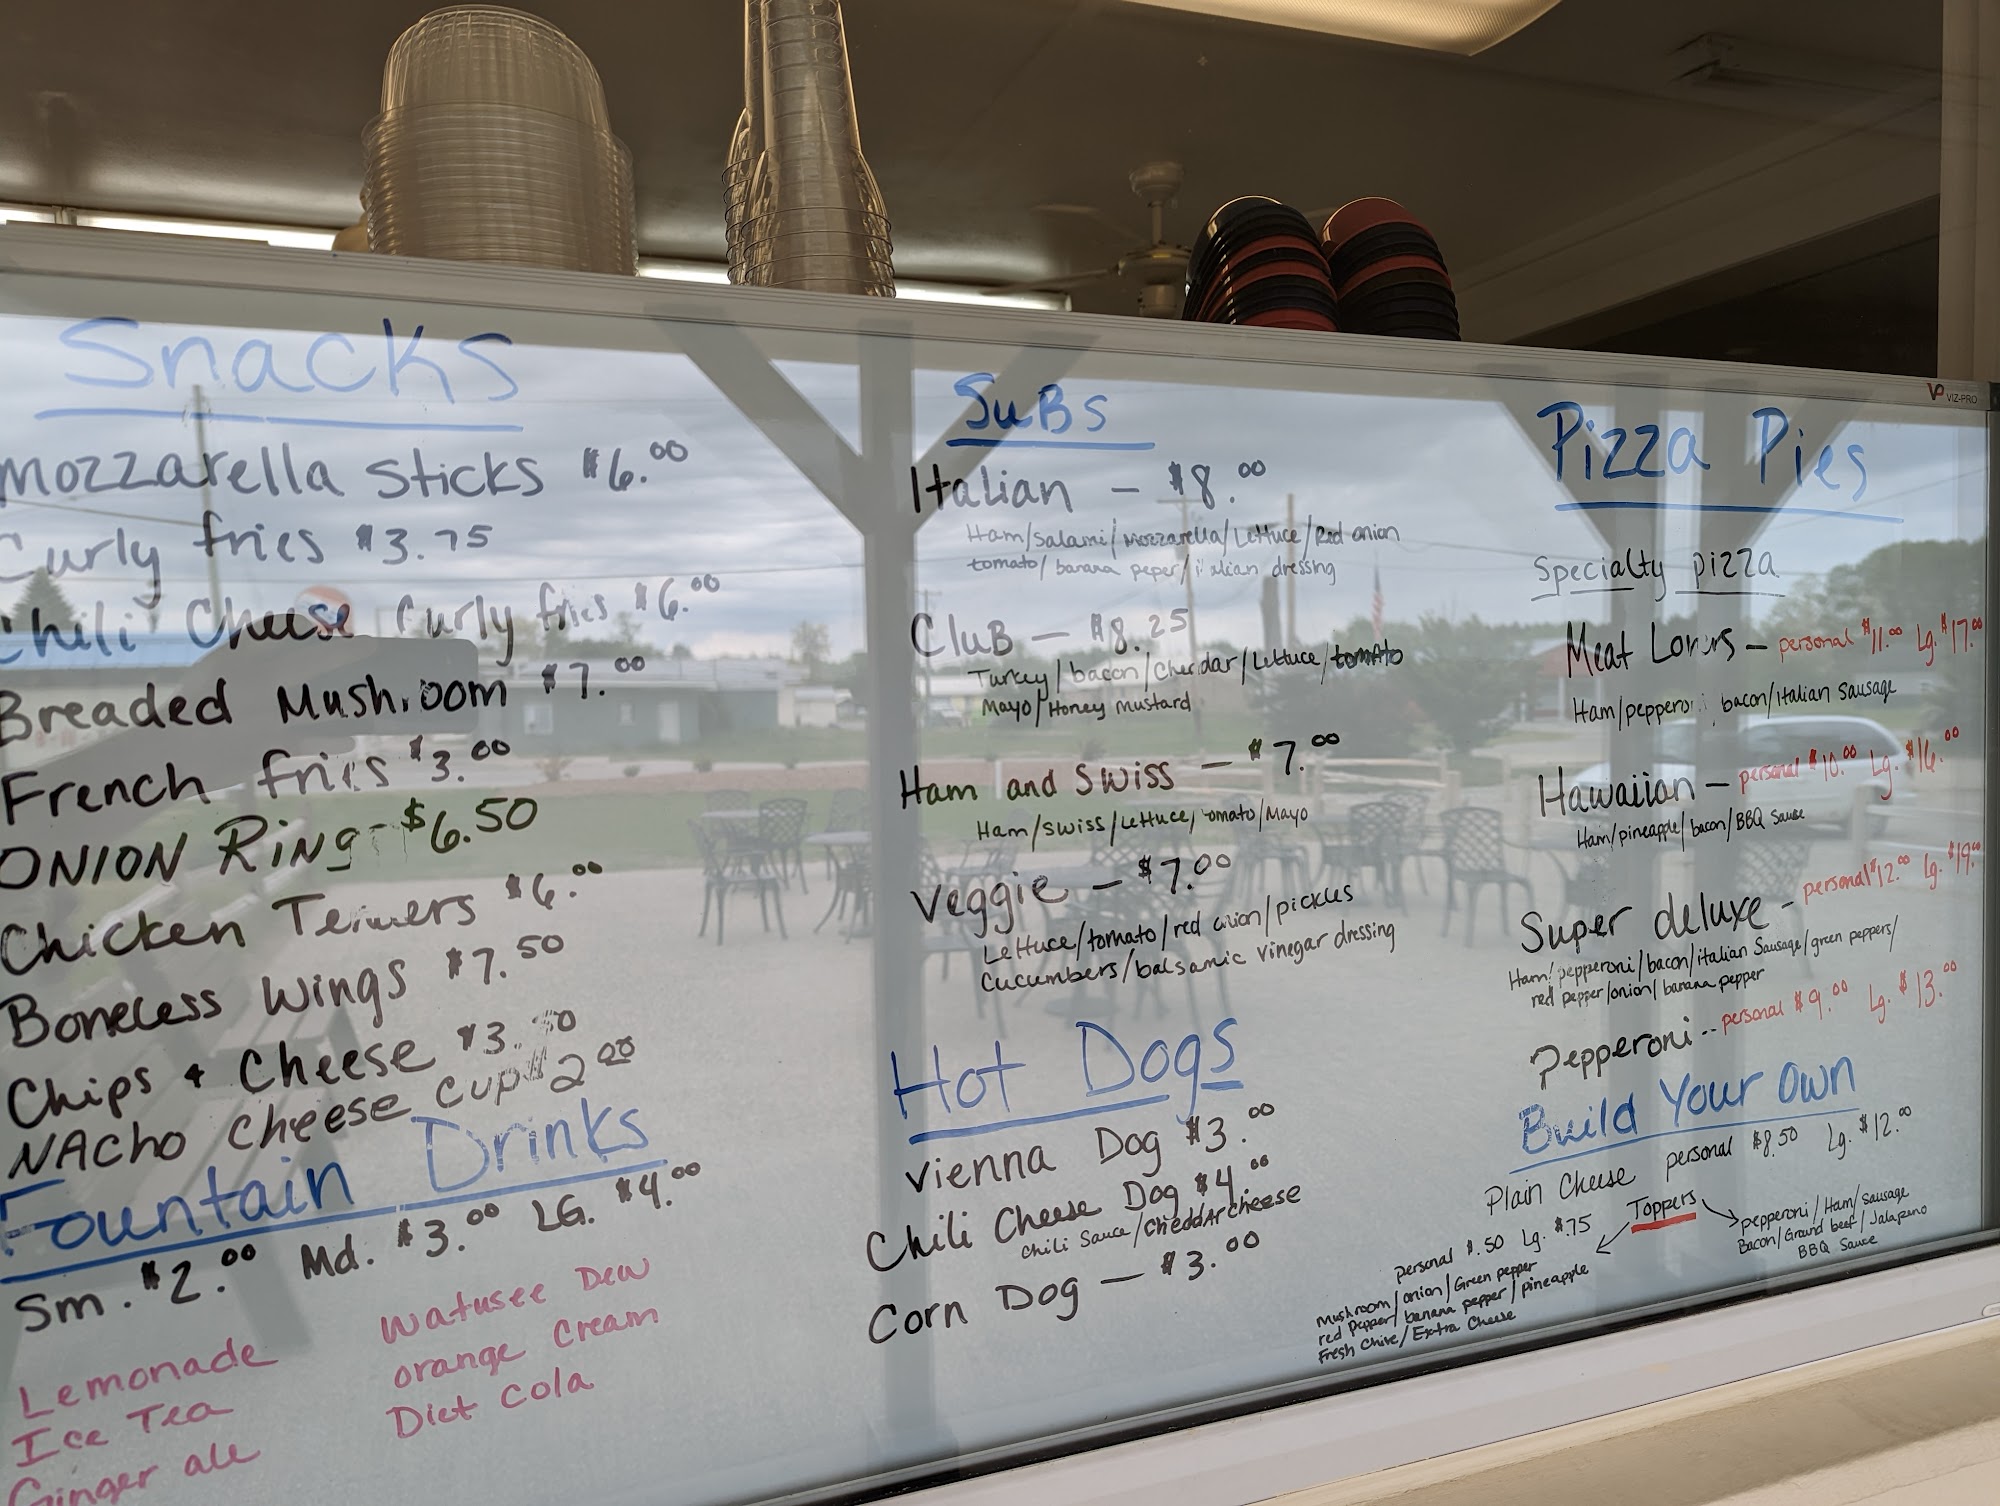 Snacks
Mozzarella Sticks $6.00
Curly fries $3.75
Chili Cheese Curly fries $6.00
Breaded Mushroom $7.00
French fries $3.00
ONION Ring - $6.50
Chicken Tenders $6.00
Boneless Wings $7.50
Chips & Cheese
NAcho Cheese Cup $2.00
Fountain Drinks
Sm. $2.00 Md. $3.00 LG. $4.00
Lemonade
Ice Tea
Ginger ale
Watusee Dew
orange Cream
Diet Cola
SuBs
Italian — $8.00
Ham/Salami/Mozzarella/Lettuce/Red onion
tomato/banana peper/italian dressing
CluB — $8.25
Turkey/bacon/Cheddar/Lettuce/tomato
Mayo/Honey mustard
Ham and Swiss — $7.00
Ham/Swiss/Lettuce/tomato/Mayo
Veggie — $7.00
Lettuce/tomato/red onion/pickles
Cucumbers/balsamic vinegar dressing
Hot Dogs
Vienna Dog $3.00
Chili Cheese Dog $4.00
Chili Sauce/CheddAr Cheese
Corn Dog — $3.00
VIZ-PRO
Pizza Pies
Specialty pizza
Meat Lovers — personal $11.00 Lg. $17.00
Ham/pepperoni/bacon/Italian Sausage
Hawaiian — personal $10.00 Lg. $16.00
Ham/pineapple/bacon/BBQ Sauce
Super deluxe - personal $12.00 Lg. $19.00
Ham/pepperoni/bacon/italian Sausage/green peppers/
red pepper/onion/banana pepper
Pepperoni -- personal $9.00 Lg. $13.00
Build Your Own
Plain Cheese personal $8.50 Lg. $12.00
Toppers
personal $.50 Lg. $.75
Mushroom/onion/Green pepper
red pepper/banana pepper/pineapple
Fresh Chive/Extra Cheese
pepperoni/Ham/Sausage
Bacon/Ground beef/Jalapeno
BBQ Sauce